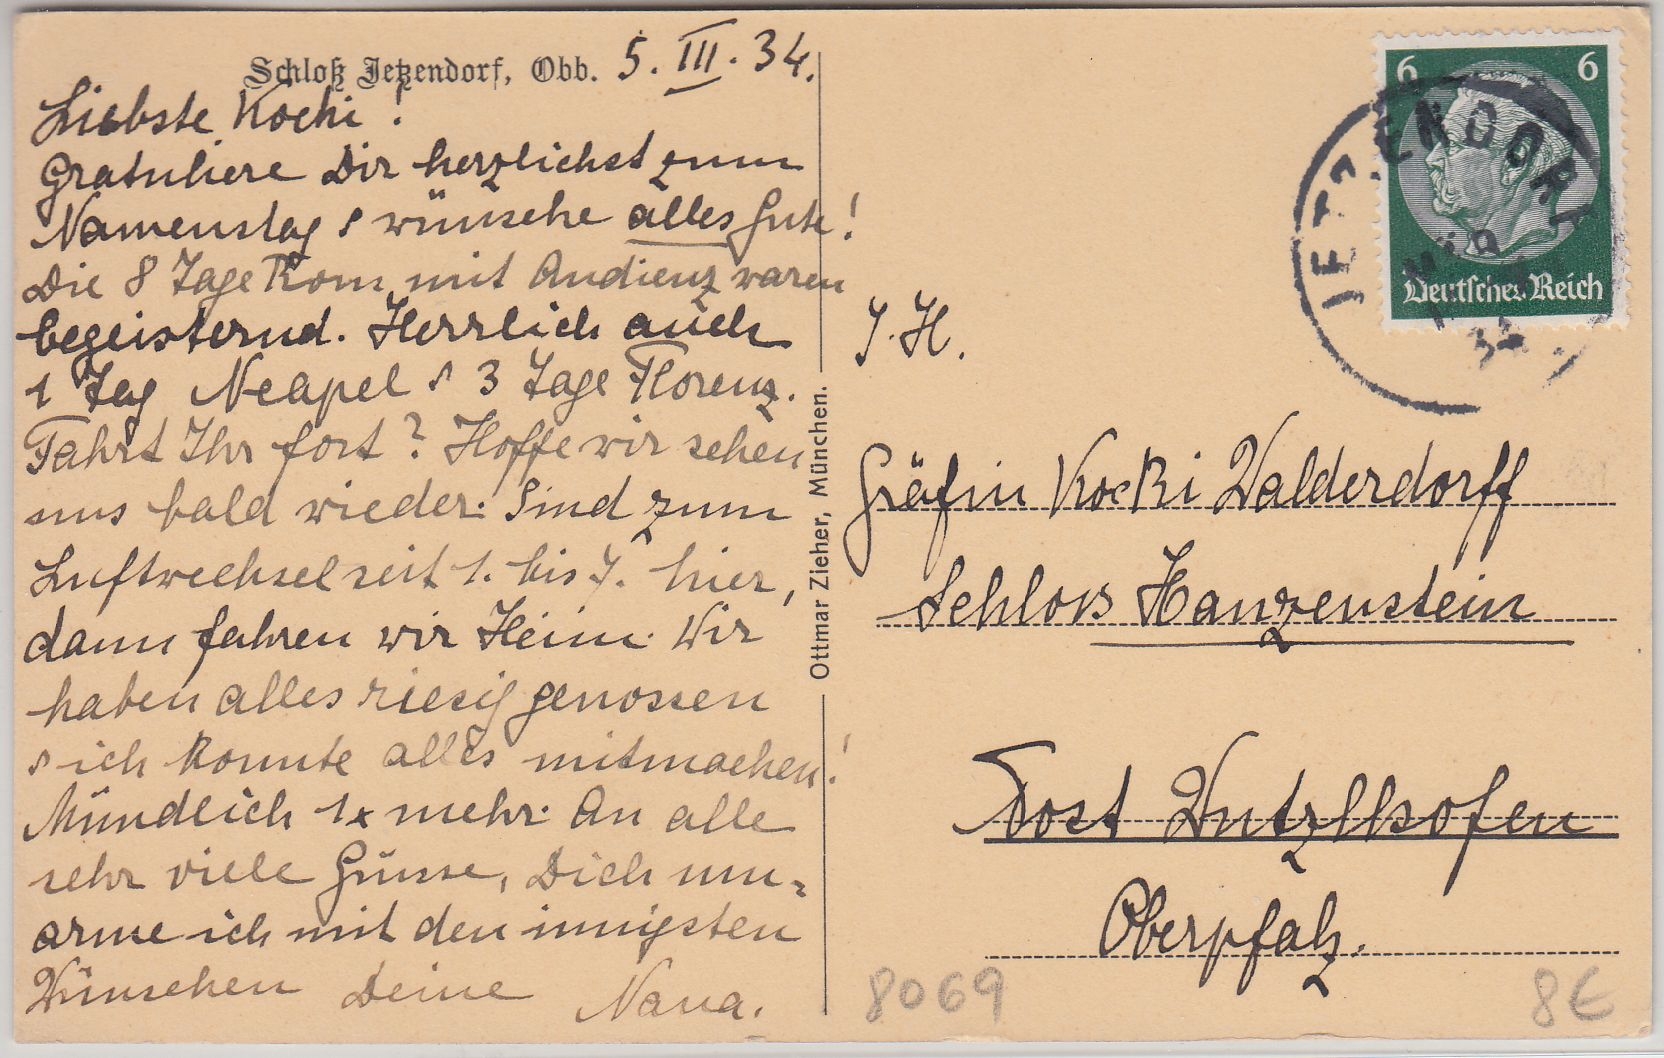 Schloß Jetzendorf, Obb. 5. III. 34.
Liebste Kocki!
Gratuliere Dir herzlichst zum
Namenstag & wünsche alles Gute!
Die 8 Tage Rom mit Audienz waren
begeisternd. Herrlich auch
1 Tag Neapel & 3 Tage Florenz.
Fahrt Ihr fort? Hoffe wir sehen
uns bald wieder. Sind zum
Luftwechsel seit 1. bis 7. hier,
dann fahren wir Heim. Wir
haben alles riesig genossen
& ich konnte alles mitmachen!
Mündlich 1x mehr. An alle
sehr viele Grüsse, Dich um-
arme ich mit den innigsten
Wünschen Deine Nana.
Ottmar Zieher, München.
6 6
Deutsches Reich
JETZENDORF
I. H.
Gräfin Kocki Walderdorff
Schloss Hauzenstein
Post Wutzlhofen
Oberpfalz.
8069
8€